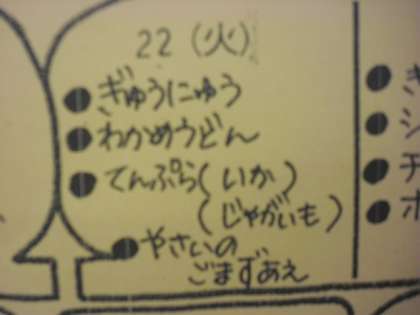 22 (火)
●ぎゅうにゅう
●わかめうどん
●てんぷら(いか)
(じゃがいも)
●やさいの
ごまずあえ